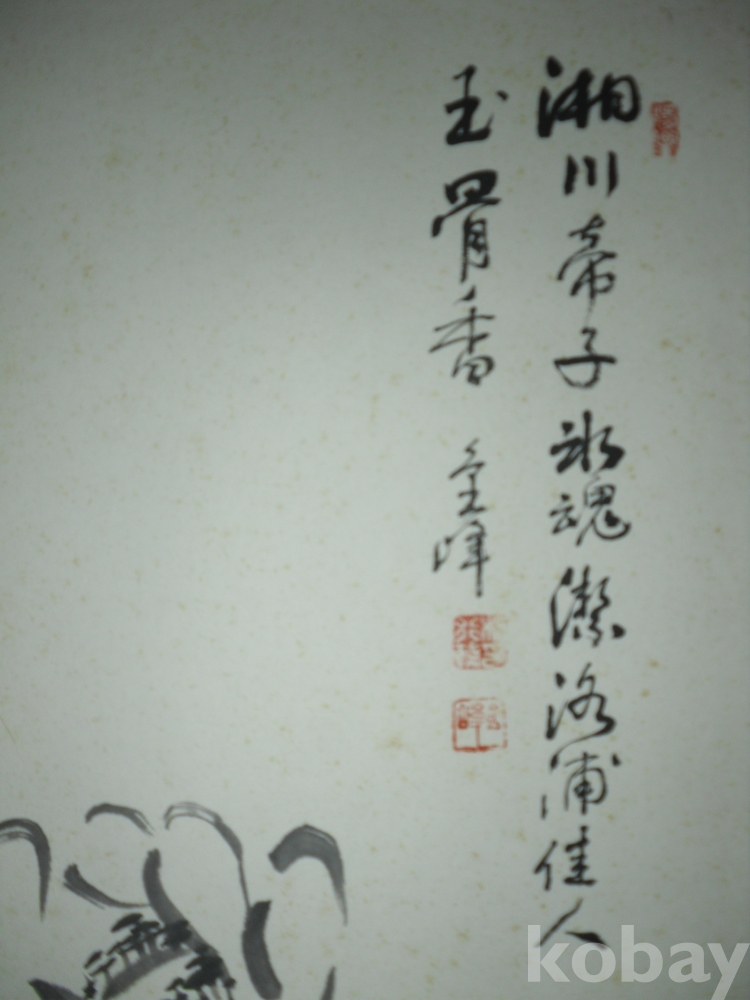 湘川帝子氷魂潔洛浦佳人
玉骨香 金峰
kobay